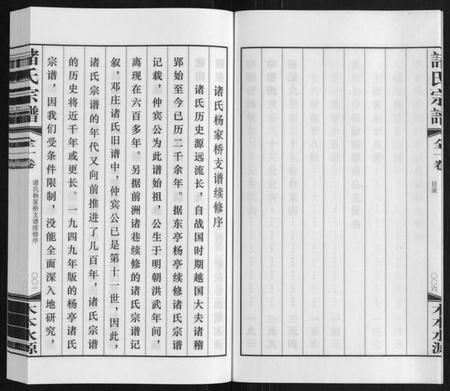 諸氏宗譜
全一卷
目录
〇〇六
木本水源
诸氏杨家桥支谱续修序
诸氏历史源远流长，自战国时期越国大夫诸稽
郢始至今已历二千余年。据东亭杨亭续修诸氏宗谱
记载，仲宾公为此谱始祖，公生于明朝洪武年间，
离现在六百多年。另据前洲诸巷续修的诸氏宗谱记
叙，邓庄诸氏旧谱中，仲宾公已是第十一世，因此，
诸氏宗谱的年代又向前推进了几百年，诸氏宗谱
的历史将近千年或更长。一九四九年版的杨亭诸氏
宗谱，因我们受条件限制，没能全面深入地研究，
諸氏宗譜
全一卷
诸氏杨家桥支谱续修序
〇〇一
木本水源